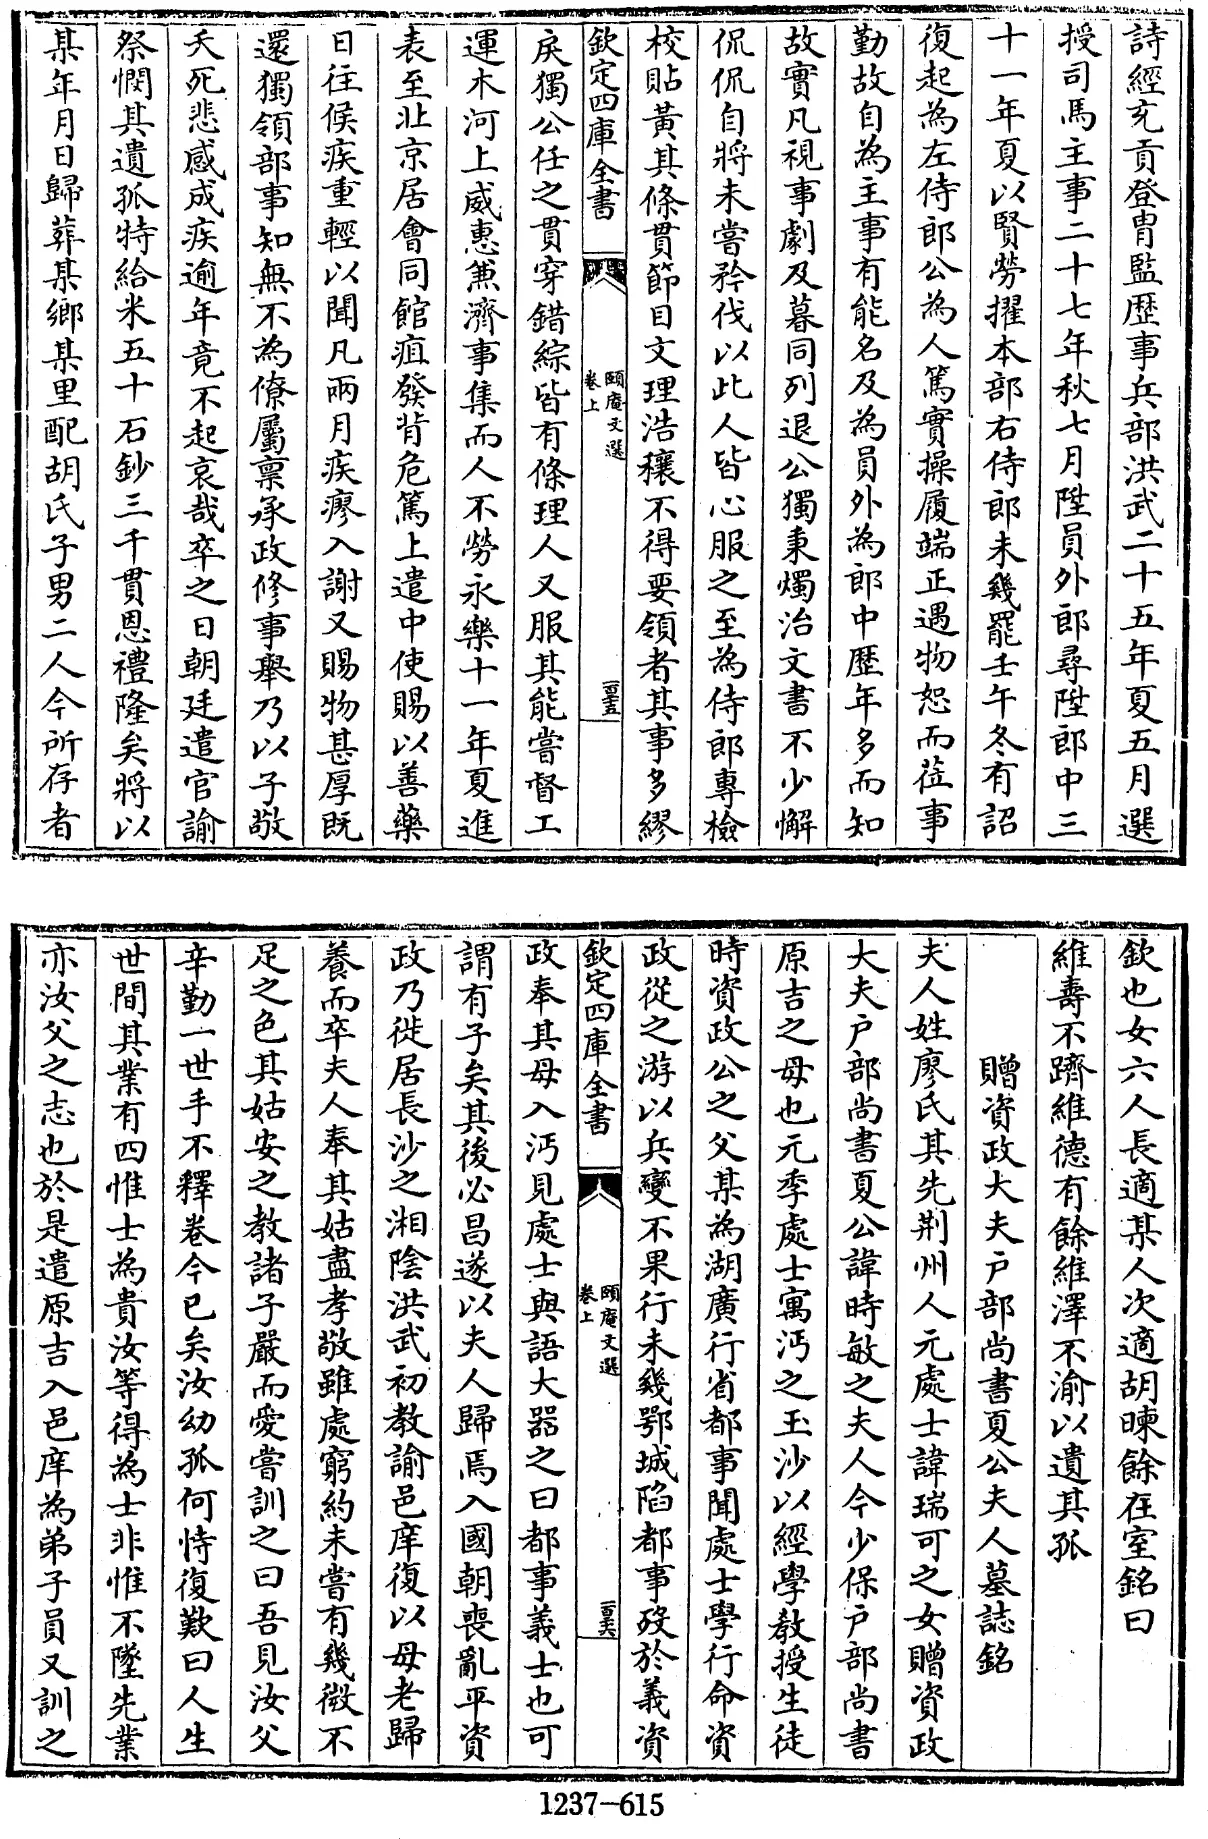 詩經充貢登胄監歴事兵部洪武二十五年夏五月選
授司馬主事二十七年秋七月陞員外郎尋陞郎中三
十一年夏以賢勞擢本部右侍郎未幾罷壬午冬有詔
復起為左侍郎公為人篤實操履端正遇物恕而莅事
勤故自為主事有能名及為員外為郎中歴年多而知
故實凡視事劇及暮同列退公獨秉燭治文書不少懈
侃侃自將未嘗矜伐以此人皆心服之至為侍郎專檢
校貼黃其條貫節目文理浩穰不得要領者其事多繆
欽定四庫全書
頤庵文選
卷上
一百三十五
戾獨公任之貫穿錯綜皆有條理人又服其能嘗督工
運木河上威惠兼濟事集而人不勞永樂十一年夏進
表至北京居會同館疽發背危篤上遣中使賜以善藥
日往候疾重輕以聞凡兩月疾瘳入謝又賜物甚厚既
還獨領部事知無不為僚屬禀承政修事舉乃以子敬
夭死悲感成疾逾年竟不起哀哉卒之日朝廷遣官諭
祭憫其遺孤特給米五十石鈔三千貫恩禮隆矣將以
某年月日歸葬某鄉某里配胡氏子男二人今所存者
欽也女六人長適某人次適胡暕餘在室銘曰
維壽不躋維德有餘維澤不渝以遺其孤
贈資政大夫户部尚書夏公夫人墓誌銘
夫人姓廖氏其先荆州人元處士諱瑞可之女贈資政
大夫户部尚書夏公諱時敏之夫人今少保户部尚書
原吉之母也元季處士寓沔之玉沙以經學教授生徒
時資政公之父某為湖廣行省都事聞處士學行命資
政從之游以兵變不果行未幾鄂城陷都事歿於義資
欽定四庫全書
頤庵文選
卷上
一百三十六
政奉其母入沔見處士與語大器之曰都事義士也可
謂有子矣其後必昌遂以夫人歸焉入國朝喪亂平資
政乃徙居長沙之湘陰洪武初教諭邑庠復以母老歸
養而卒夫人奉其姑盡孝敬雖處窮約未嘗有幾微不
足之色其姑安之教諸子嚴而愛嘗訓之曰吾見汝父
辛勤一世手不釋卷今已矣汝幼孤何恃復歎曰人生
世間其業有四惟士為貴汝等得為士非惟不墜先業
亦汝父之志也於是遣原吉入邑庠為弟子員又訓之
1237-615